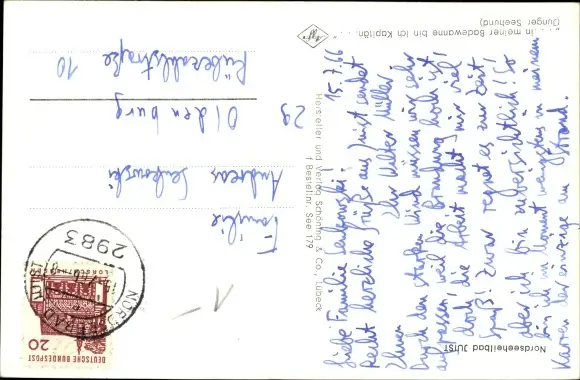 "... in meiner Badewanne bin ich Kapitän ..."
(Junger Seehund)
15.7.66
Liebe Familie Senkowski!
Recht herzliche Grüße aus Juist sendet
Ihnen Ihr Walter Müller.
Durch den starken Wind müssen wir sehr
aufpassen, weil die Brandung hoch ist,
doch die Arbeit macht mir viel
Spaß! Zwar regnet es zur Zeit,
aber ich bin zuversichtlich! So
bin ich im wenigstens in meinem
Karren der einzige am Strand.
Nordseeheilbad JUIST
Hersteller und Verlag Schöning & Co., Lübeck
Bestellnr. See 179
DEUTSCHE BUNDESPOST
20
2983
NORDSEEBAD
Familie
Andreas
Senkowski
29 Oldenburg
Rübezahlstraße
10
1